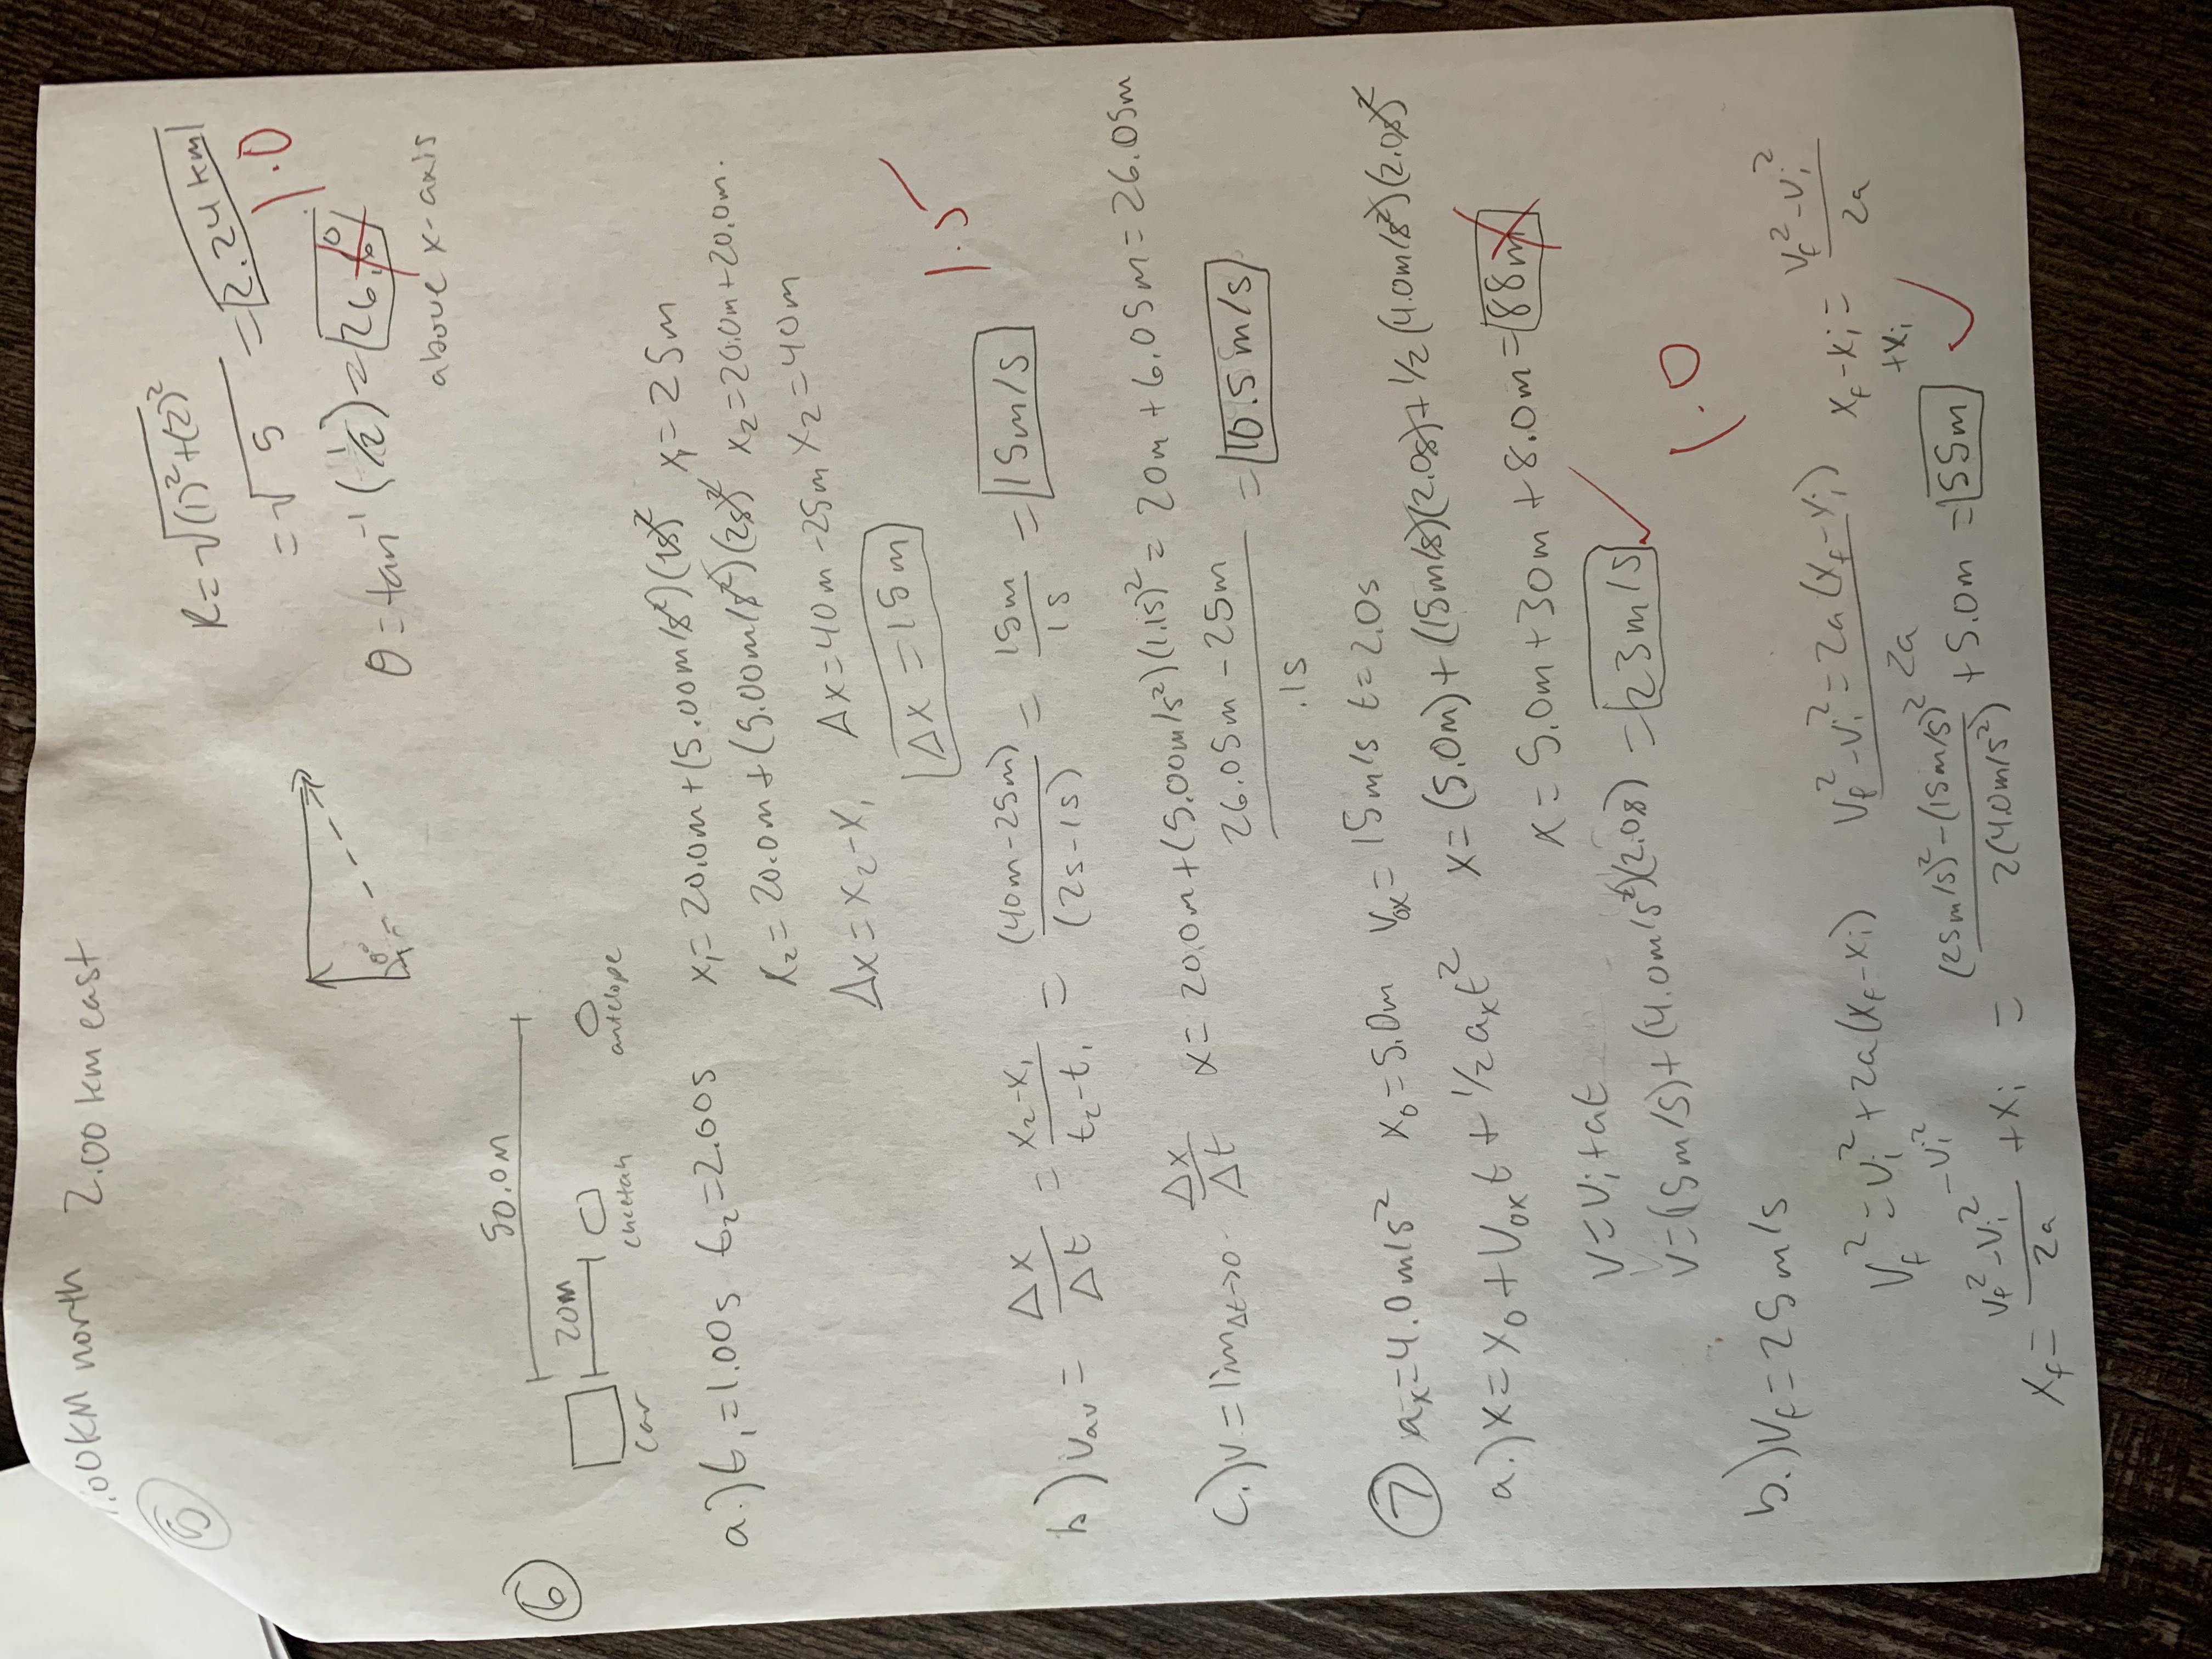 .00KM north 2.00 km east
5
R = √(1)²+(2)²
= √5 = 2.24 km
1.0
θ°
θ = tan⁻¹(1/2) = 26.6°
above x-axis
6
50.0m
20m
car
cheetah
antelope
a.) t₁=1.00s t₂=2.00s x₁= 20.0m+(5.00m/s²)(1s)² x₁= 25m
x₂= 20.0m+(5.00m/s²)(2s)² x₂=20.0m+20.0m.
Δx = x₂-x₁ Δx=40m-25m x₂=40m
Δx = 15m
1.5
b) Vav = Δx/Δt = x₂-x₁/t₂-t₁ = (40m-25m)/(2s-1s) = 15m/1s = 15m/s
c.) v = lim Δt→0 Δx/Δt x= 20.0m+(5.00m/s²)(1.1s)² = 20m+6.05m=26.05m
26.05m-25m/.1s = 10.5m/s
7 aₓ=4.0m/s² x₀=5.0m v₀ₓ= 15m/s t=2.0s
a.) x= x₀+V₀ₓt+½aₓt² x= (5.0m)+(15m/s)(2.0s)+½(4.0m/s²)(2.0s)²
x= 5.0m+30m+8.0m=88m
v=vᵢ+at
v=(15m/s)+(4.0m/s²)(2.0s) = 23m/s
1.0
b.) Vf=25m/s
Vf²=Vᵢ²+2a(xf-xᵢ) Vf²-Vᵢ²=2a(xf-xᵢ) xf-xᵢ= Vf²-Vᵢ²/2a
-Vᵢ² 2a +xᵢ
xf= Vf²-Vᵢ²/2a +xᵢ = (25m/s)²-(15m/s)²/2(4.0m/s²) +5.0m = 55m